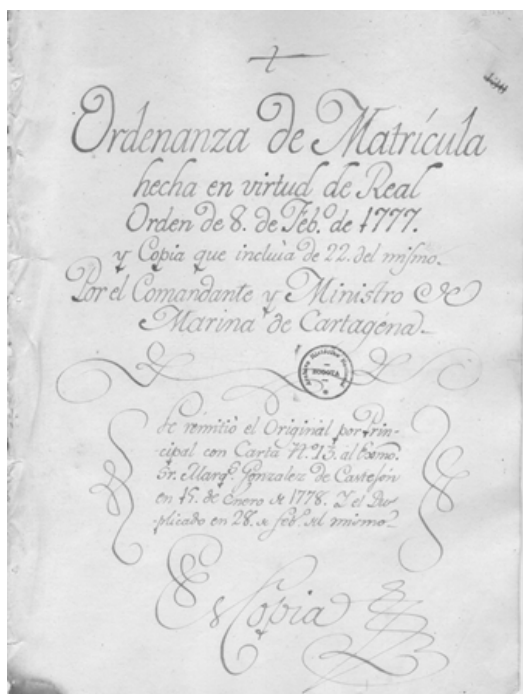 Ordenanza de Matrícula
hecha en virtud de Real
Orden de 8. de Feb.º de 1777.
y Copia que incluia de 22. del mismo.
Por el Comandante y Ministro de
Marina de Cartagena
BOGOTA
Se remitió el Original por Prin-
cipal con Carta N.º 13. al Exmo.
Sr. Marq.s Gonzalez de Castejón
en 15. de Enero de 1778. Y el Du-
plicado en 28. de feb.º del mismo
Es Copia